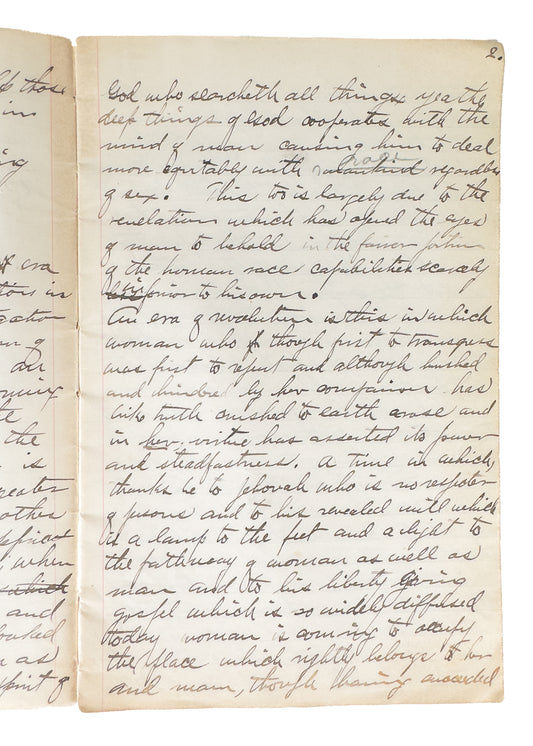 those
im
ing
era
in
of
an
the
is
greater
other
when
which
and
as
spirit of
2.
God who searcheth all things yea the
deep things of God cooperates with the
mind of man causing him to deal
more equitably with mankind regardless
of sex. This too is largely due to the
revelation which has opened the eyes
of man to behold in the fairer portion
of the human race capabilities scarcely
prior to his own.
An era of revolution is this in which
woman who though first to transgress
was first to repent and although hushed
and hindered by her companion has
like truth crushed to earth arose and
in her, virtue has asserted its power
and steadfastness. A time in which,
thanks be to Jehovah who is no respecter
of persons and to his revealed will which
is a lamp to the feet and a light to
the pathway of woman as well as
man and to his liberty giving
gospel which is so widely diffused
today woman is coming to occupy
the place which rightly belongs to her
and man, though having succeeded